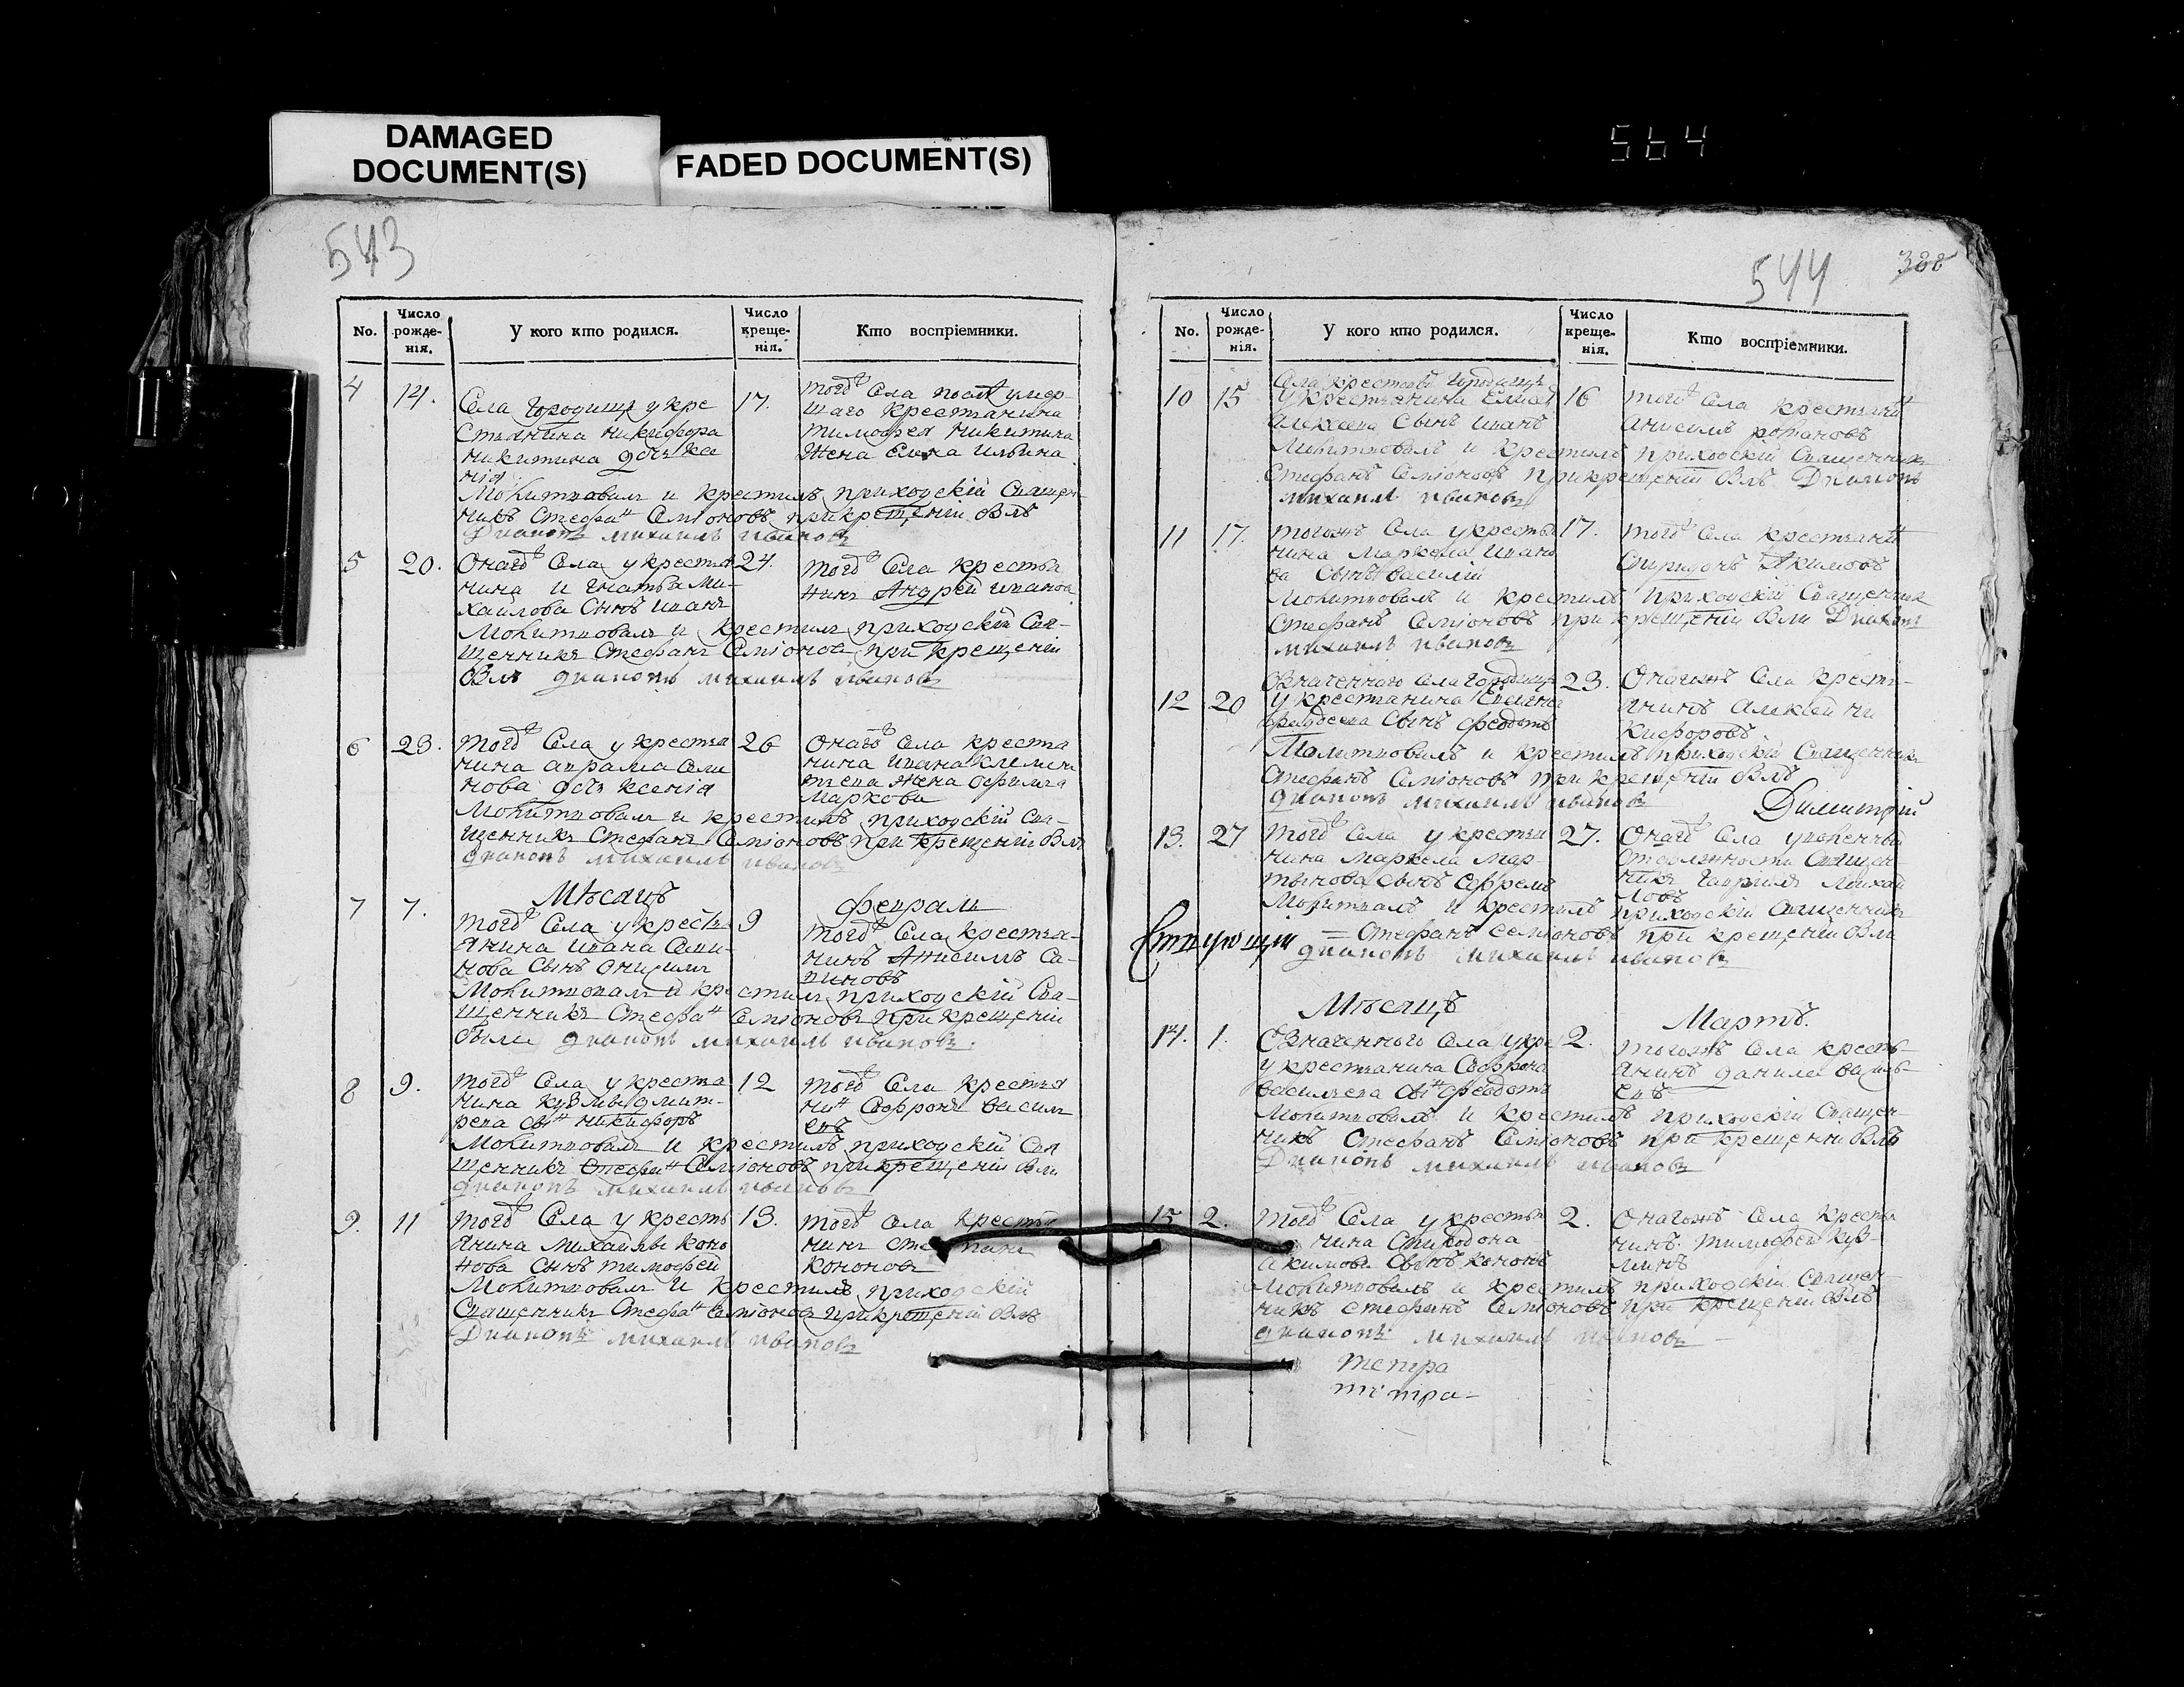 DAMAGED
DOCUMENT(S)
FADED DOCUMENT(S)
564
543
No.
Число
рожде-
нія.
У кого кто родился.
Число
креще-
нія.
Кто воспріемники.
4
14.
Села Городищъ у кре
стьянина Никифора
Никитина дочь Ксе
нія
17.
тогоъ Села после умер-
шаго крестьянина
Тимофея Никитина
жена Елена Ильина
Молитвовалъ и крестилъ приходскій Священ-
никъ Стефанъ Семіоновъ при крещеніи былъ
Діаконъ Михаилъ Ивановъ
5
20.
Онагоъ Села у крестья
нина Игнатья Ми-
хайлова Сынъ Иванъ
24.
тогоъ Села крестья
нинъ Андрей Иванов
Молитвовалъ и крестилъ приходскій Свя-
щенникъ Стефанъ Семіонов при крещеніи
былъ діаконъ Михаилъ Ивановъ
6
23.
тогоъ Села у крестья
нина Аврама Семи
нова дочь Ксенія
26
Онагоъ Села крестья
нина Ивана Клемен
тьева жена Офимья
Маркова
Молитвовалъ и крестилъ приходскій Свя-
щенникъ Стефанъ Семіоновъ при крещеніи былъ
діаконъ Михаилъ Ивановъ
Мѣсяцъ
Февраль
7
7.
тогоъ Села у крестья
янина Ивана Семи-
нова Сынъ Онисимъ
9
тогоъ Села крестья-
нинъ Анисимъ Са-
виновъ
Молитвовалъ и крестилъ приходскій Свя-
щенникъ Стефанъ Семіоновъ при крещеніи
были діаконъ Михаилъ Ивановъ.
8
9.
тогоъ Села у крестья
нина Кузмы Дмит-
рева сынъ Никифоръ
12
тогоъ Села крестья
нинъ Софронъ Василь
евъ
Молитвовалъ и крестилъ приходскій Свя
щенникъ Стефанъ Семіоновъ при крещеніи были
діаконъ Михаилъ Ивановъ
9.
11
тогоъ Села у кресть
янина Михайлы Коно
нова Сынъ Тимофей
13.
тогоъ Села крестья
нинъ Степанъ
Кононовъ
Молитвовалъ и крестилъ приходскій
Священникъ Стефанъ Семіонов при крещеніи былъ
Діаконъ Михаилъ Ивановъ
544
388
No.
Число
рожде-
нія.
У кого кто родился.
Число
креще-
нія.
Кто воспріемники.
10
15
Села Городищъ
у крестьянина
Алексеева Сынъ Иванъ
16
тогоъ Села крестьянинъ
Анисимъ Романовъ
Молитвовалъ и крестилъ приходскій Священникъ
Стефанъ Семіоновъ при крещеніи былъ Діаконъ
Михаилъ Ивановъ
11
17.
тогожъ Села у крестья
нина Маркела Ивано
ва Сынъ Василій
17.
тогоъ Села крестьянинъ
Спиридонъ Акимовъ
Молитвовалъ и крестилъ приходскій Священникъ
Стефанъ Семіоновъ при крещеніи были Діаконъ
Михаилъ Ивановъ
12
20
Означеннаго Села Городищъ
у крестьянина
Федосеева Сынъ Феодотъ
23.
Онагожъ Села кресть-
янинъ Алексей Ни
кифоровъ
Молитвовалъ и крестилъ приходскій Священникъ
Стефанъ Семіоновъ при крещеніи былъ
діаконъ Михаилъ Ивановъ
Димитрій
13.
27
тогоъ Села у крестья
нина Маркела Мар-
тынова сынъ Ефремъ
27.
Онагоъ Села уволенный
от должности Священ-
никъ Гаврилъ Михай
ловъ
Молитвалъ и крестилъ приходскій Священникъ
= Стефанъ Семіоновъ при крещеніи были
діаконъ Михаилъ Ивановъ
Мѣсяцъ
Мартъ.
14.
1.
Означенного Села у кре
у крестьянина Софрона
Васильева сынъ Феодотъ
2.
тогожъ Села кресть-
янинъ Данила Василь-
евъ
Молитвовалъ и крестилъ приходскій Священ-
никъ Стефанъ Семіоновъ при крещеніи былъ
Діаконъ Михаилъ Ивановъ
15
2.
тогоъ Села у крестья
нина Спиридона
Акимова Сынъ Кононъ
2.
Онагожъ Села крестья
нинъ Тимофей Куз-
минъ
Молитвовалъ и крестилъ приходскій Священ-
никъ Стефанъ Семіоновъ при крещеніи былъ
діаконъ Михаилъ Ивановъ